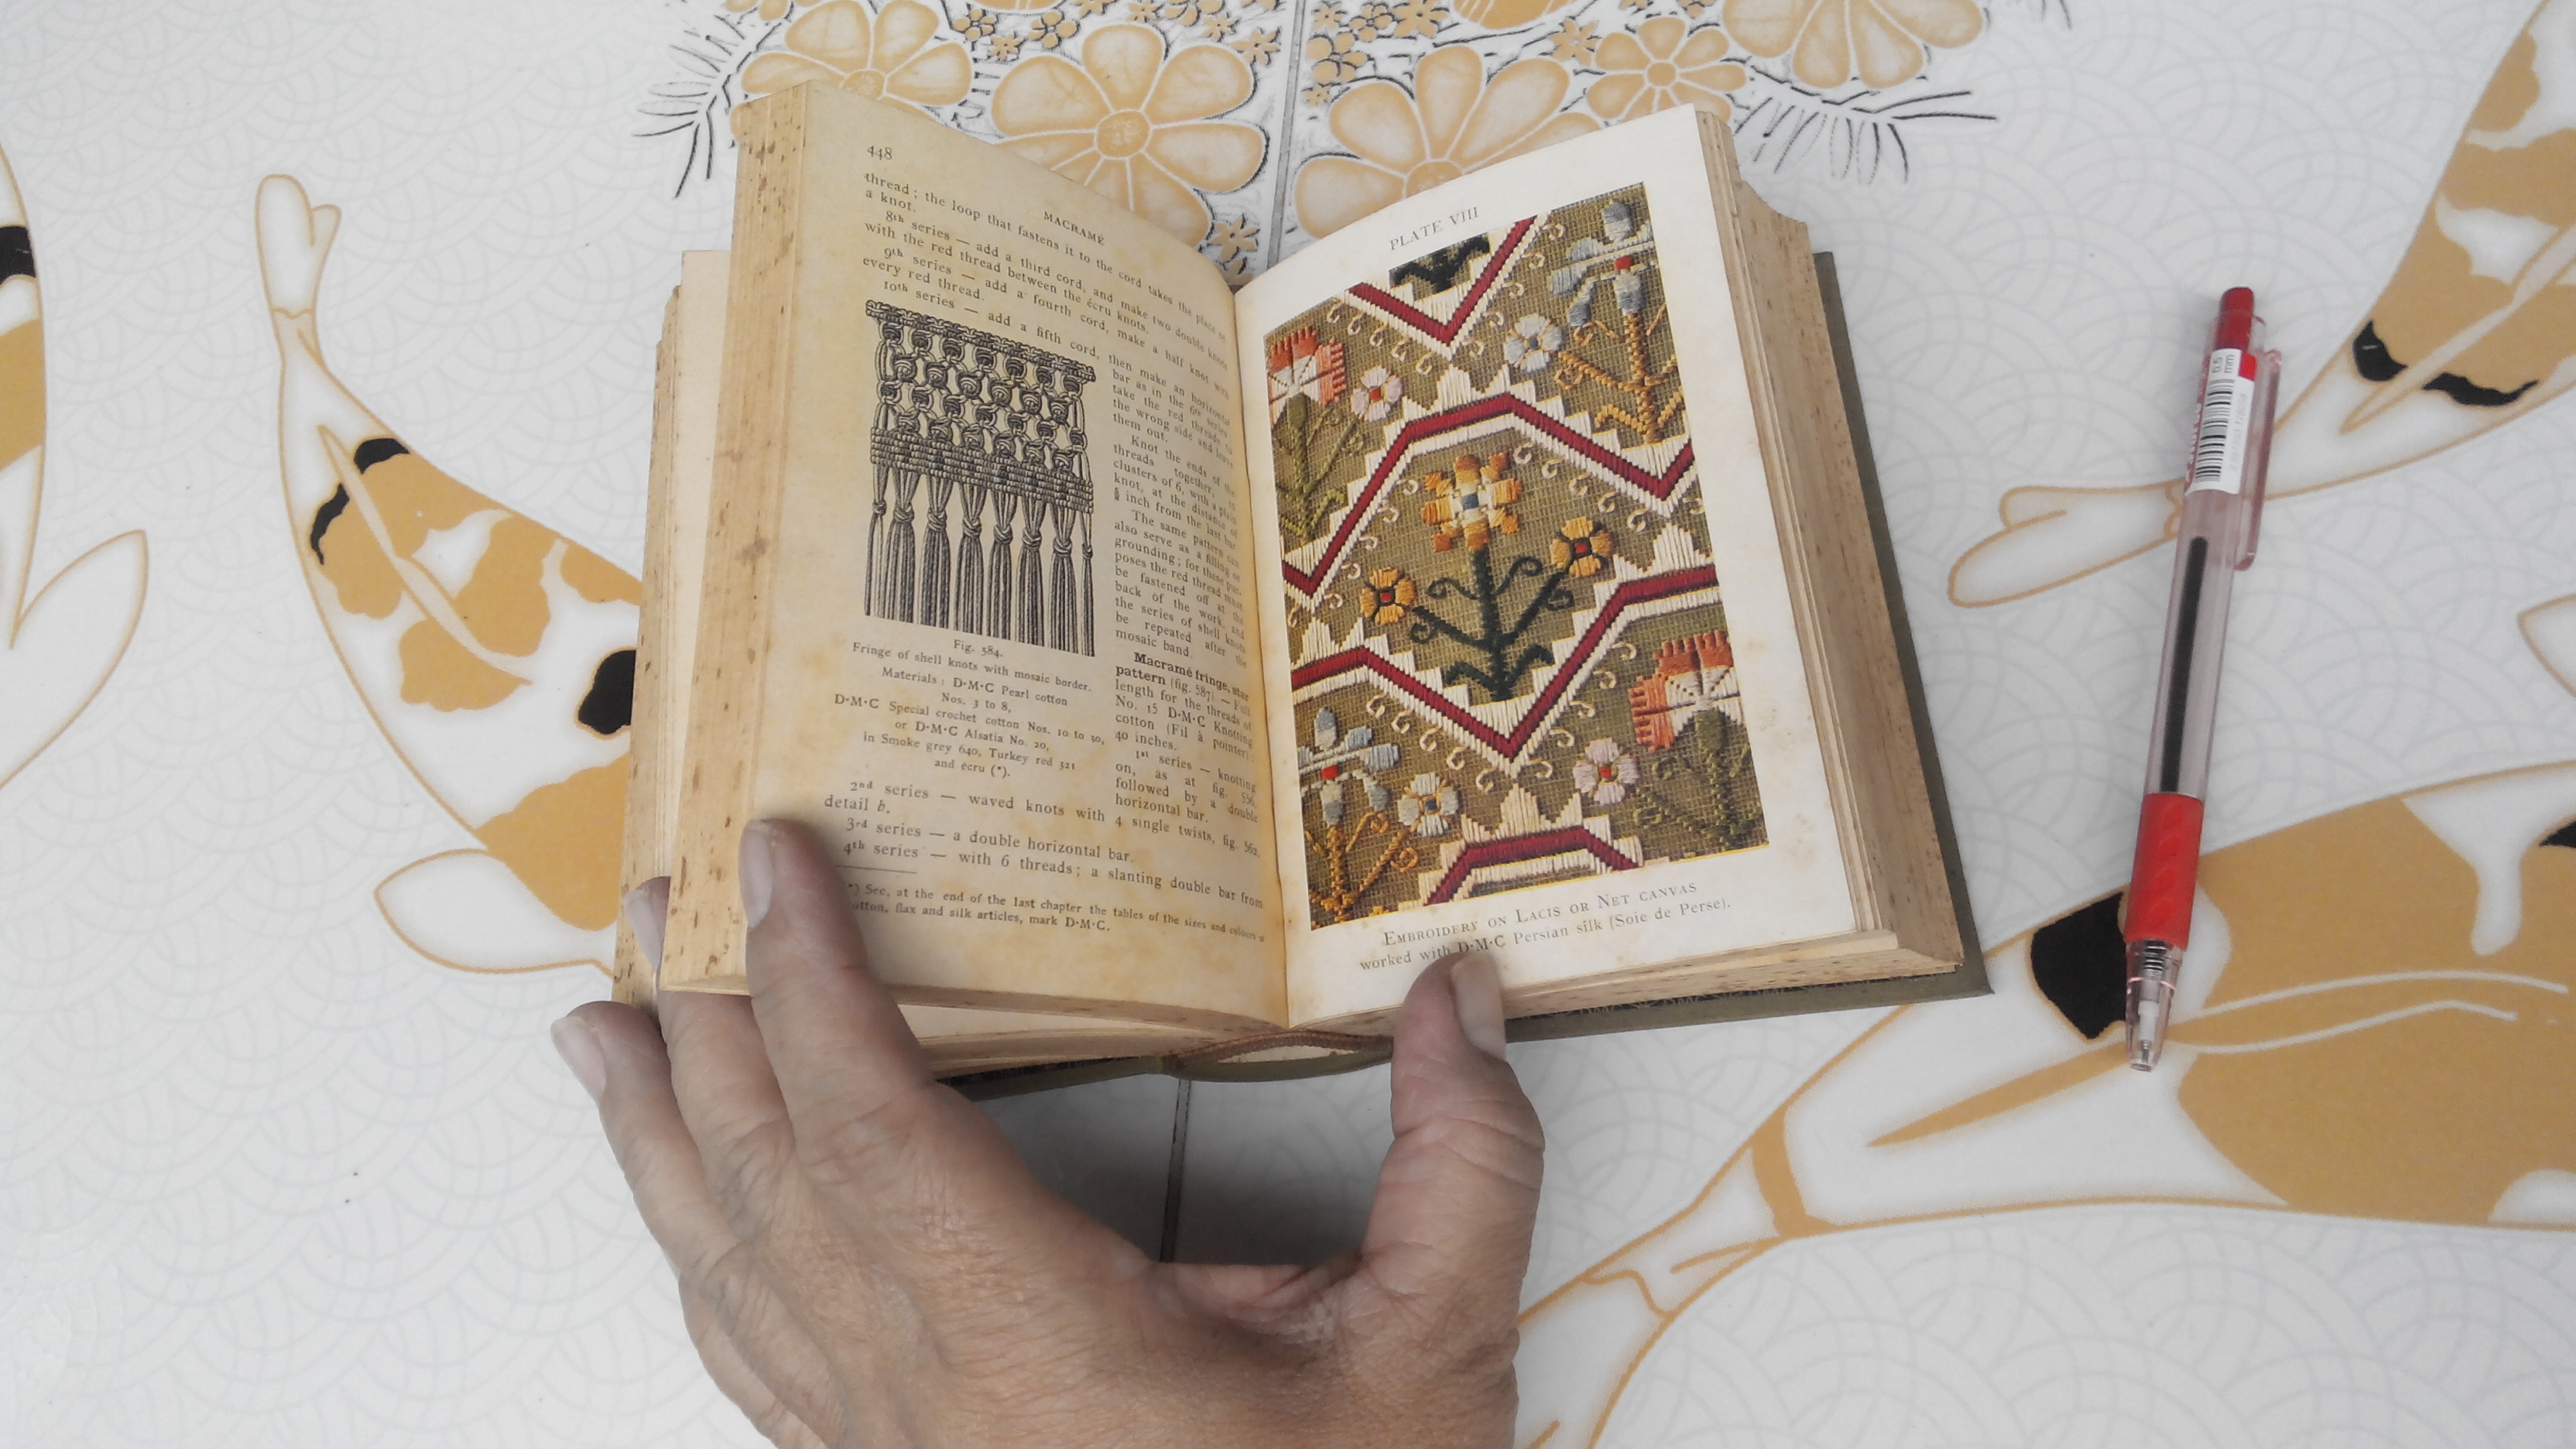 448
MACRAMÉ
thread; the loop that fastens it to the cord takes the place of
a knot.
8th series — add a third cord, and make two double knots
with the red thread between the écru knots.
9th series — add a fourth cord, make a half knot with
every red thread.
10th series — add a fifth cord, then make an horizontal
bar as in the 6th series
take the red threads to
the wrong side and leave
them out.
Knot the ends of the
threads together, in
clusters of 6, with a plain
knot, at the distance of
inch from the last bar
The same pattern can
also serve as a filling or
grounding; for these pur-
poses the red thread must
be fastened off at the
back of the work, and
the series of shell knots
be repeated after the
mosaic band.
Macramé fringe, star
pattern (fig. 587). — Full
length for the threads of
No. 15 D·M·C Knotting
cotton (Fil à pointer):
40 inches.
1st series — knotting
on, as at fig. 556,
followed by a double
horizontal bar.
Fig. 584.
Fringe of shell knots with mosaic border.
Materials: D·M·C Pearl cotton
Nos. 3 to 8,
D·M·C Special crochet cotton Nos. 10 to 30,
or D·M·C Alsatia No. 20,
in Smoke grey 640, Turkey red 321
and écru (*).
2nd series — waved knots with 4 single twists, fig. 562,
detail b.
3rd series — a double horizontal bar.
4th series — with 6 threads; a slanting double bar from
*) See, at the end of the last chapter the tables of the sizes and colours
cotton, flax and silk articles, mark D·M·C.
PLATE VIII
EMBROIDERY ON LACIS OR NET CANVAS
worked with D·M·C Persian silk (Soie de Perse).
0.5
mm